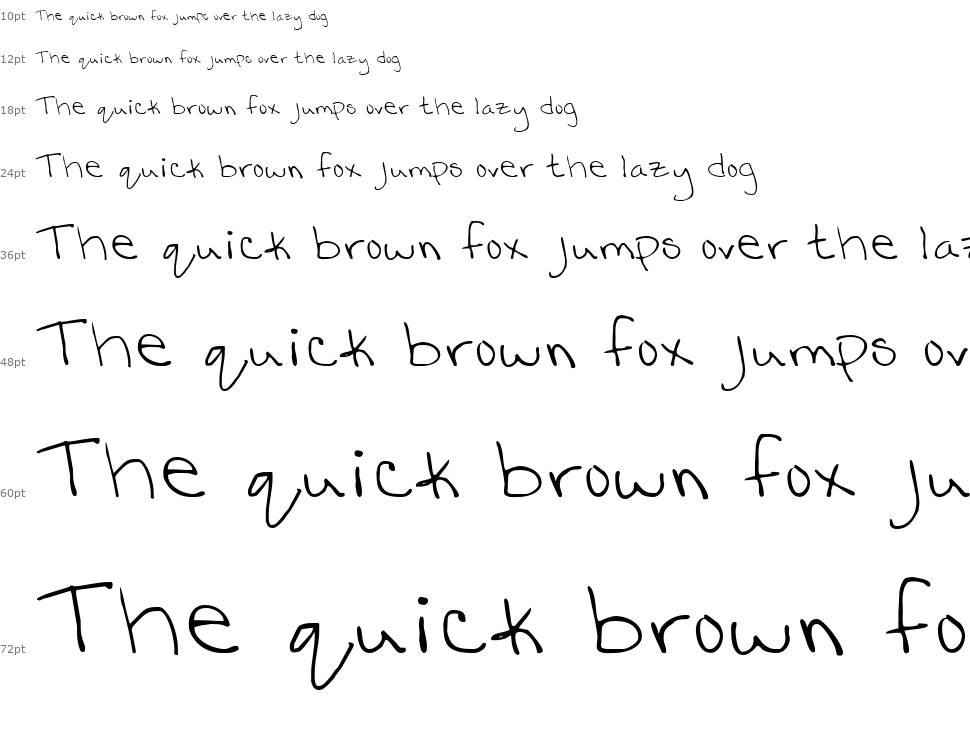 10pt The quick brown fox jumps over the lazy dog
12pt The quick brown fox jumps over the lazy dog
18pt The quick brown fox jumps over the lazy dog
24pt The quick brown fox jumps over the lazy dog
36pt The quick brown fox jumps over the laz
48pt The quick brown fox jumps ov
60pt The quick brown fox ju
72pt The quick brown fo